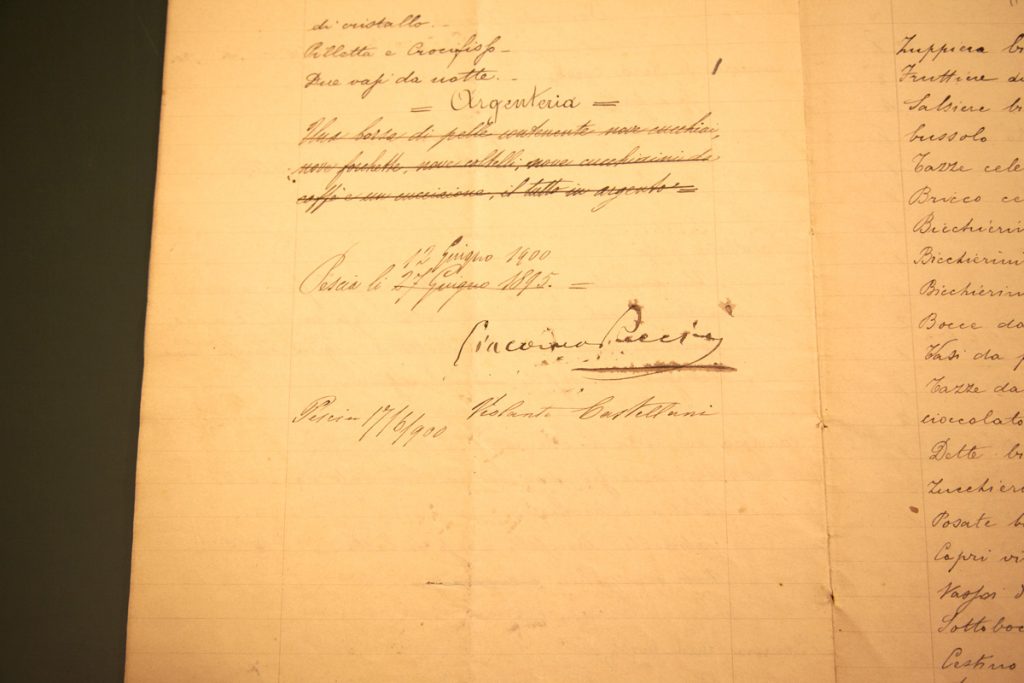 di cristallo.
Pilletta e Crocifisso
Due vasi da notte.
= Argenteria =
Una borsa di pelle contenente nove cucchiai,
nove forchette, nove coltelli, nove cucchiaini da
caffè e un cucchiaione, il tutto in argento=
12 Giugno 1900
Pescia li 27 Giugno 1895. =
Giacomo Puccini
Pescia 17/6/900
Violante Castellani
Zuppiera
Fruttiere
Salsiere
bussolo
Tazze
Bricco
Bicchierini
Bicchierini
Bicchierini
Bocce
Vasi da
Tazze da
cioccolato
Dette
Posate
Capri
Vassoi
Cestino